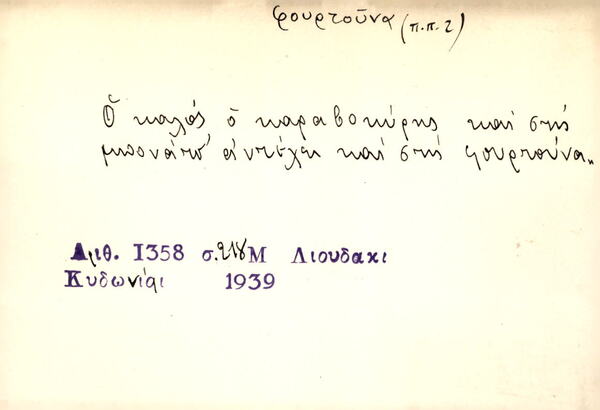 φουρτοῦνα (π.π. 2)
Ὁ καλός ὁ καραβοκύρης καί στή
μπονάτσ' ἀντέχει καί στή φουρτούνα.
Αριθ. 1358 σ. 218 Μ Λιουδακι
Κυδωνίαι 1939